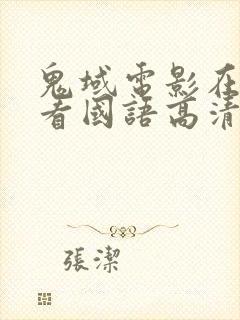 鬼域電影在
看國語高清
張潔